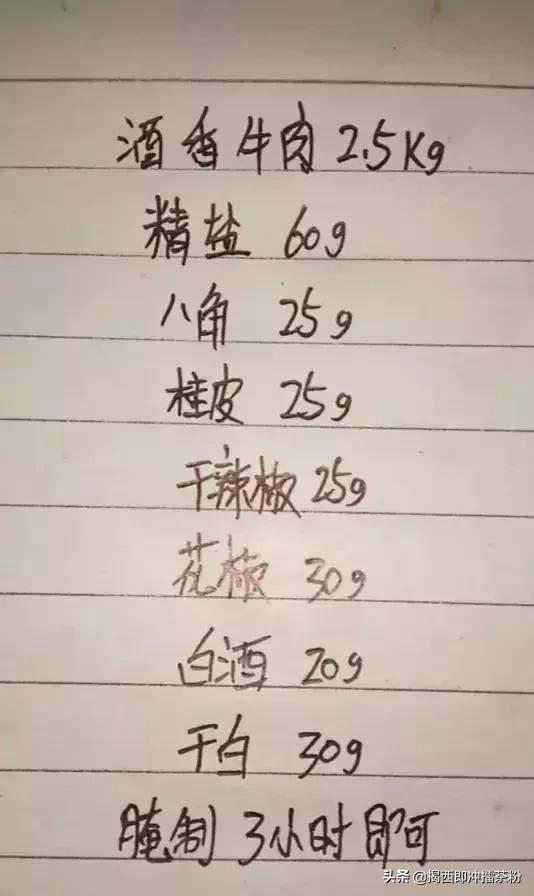 酒香牛肉 2.5Kg
精盐 60g
八角 25g
桂皮 25g
干辣椒 25g
花椒 30g
白酒 20g
干白 30g
腌制 3小时即可
头条 @揭西即冲擂茶粉